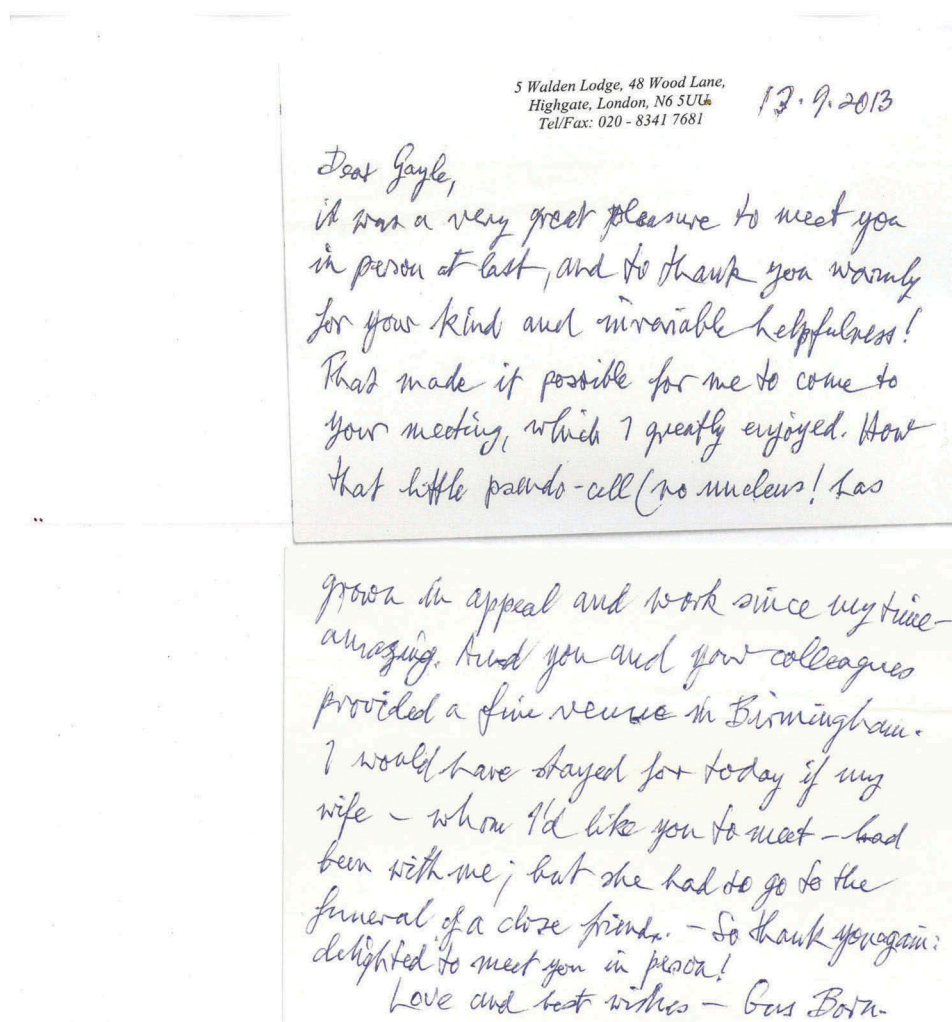 5 Walden Lodge, 48 Wood Lane,
Highgate, London, N6 5UU.
Tel/Fax: 020 - 8341 7681
13.9.2013
Dear Gayle,
it was a very great pleasure to meet you
in person at last, and to thank you warmly
for your kind and invariable helpfulness!
That made it possible for me to come to
your meeting, which I greatly enjoyed. How
that little pseudo-cell (no nucleus! has
grown in appeal and work since my time–
amazing. And you and your colleagues
provided a fine venue in Birmingham.
I would have stayed for today if my
wife – whom I'd like you to meet – had
been with me; but she had to go to the
funeral of a close friend. – So thank you again:
delighted to meet you in person!
Love and best wishes – Gus Born.